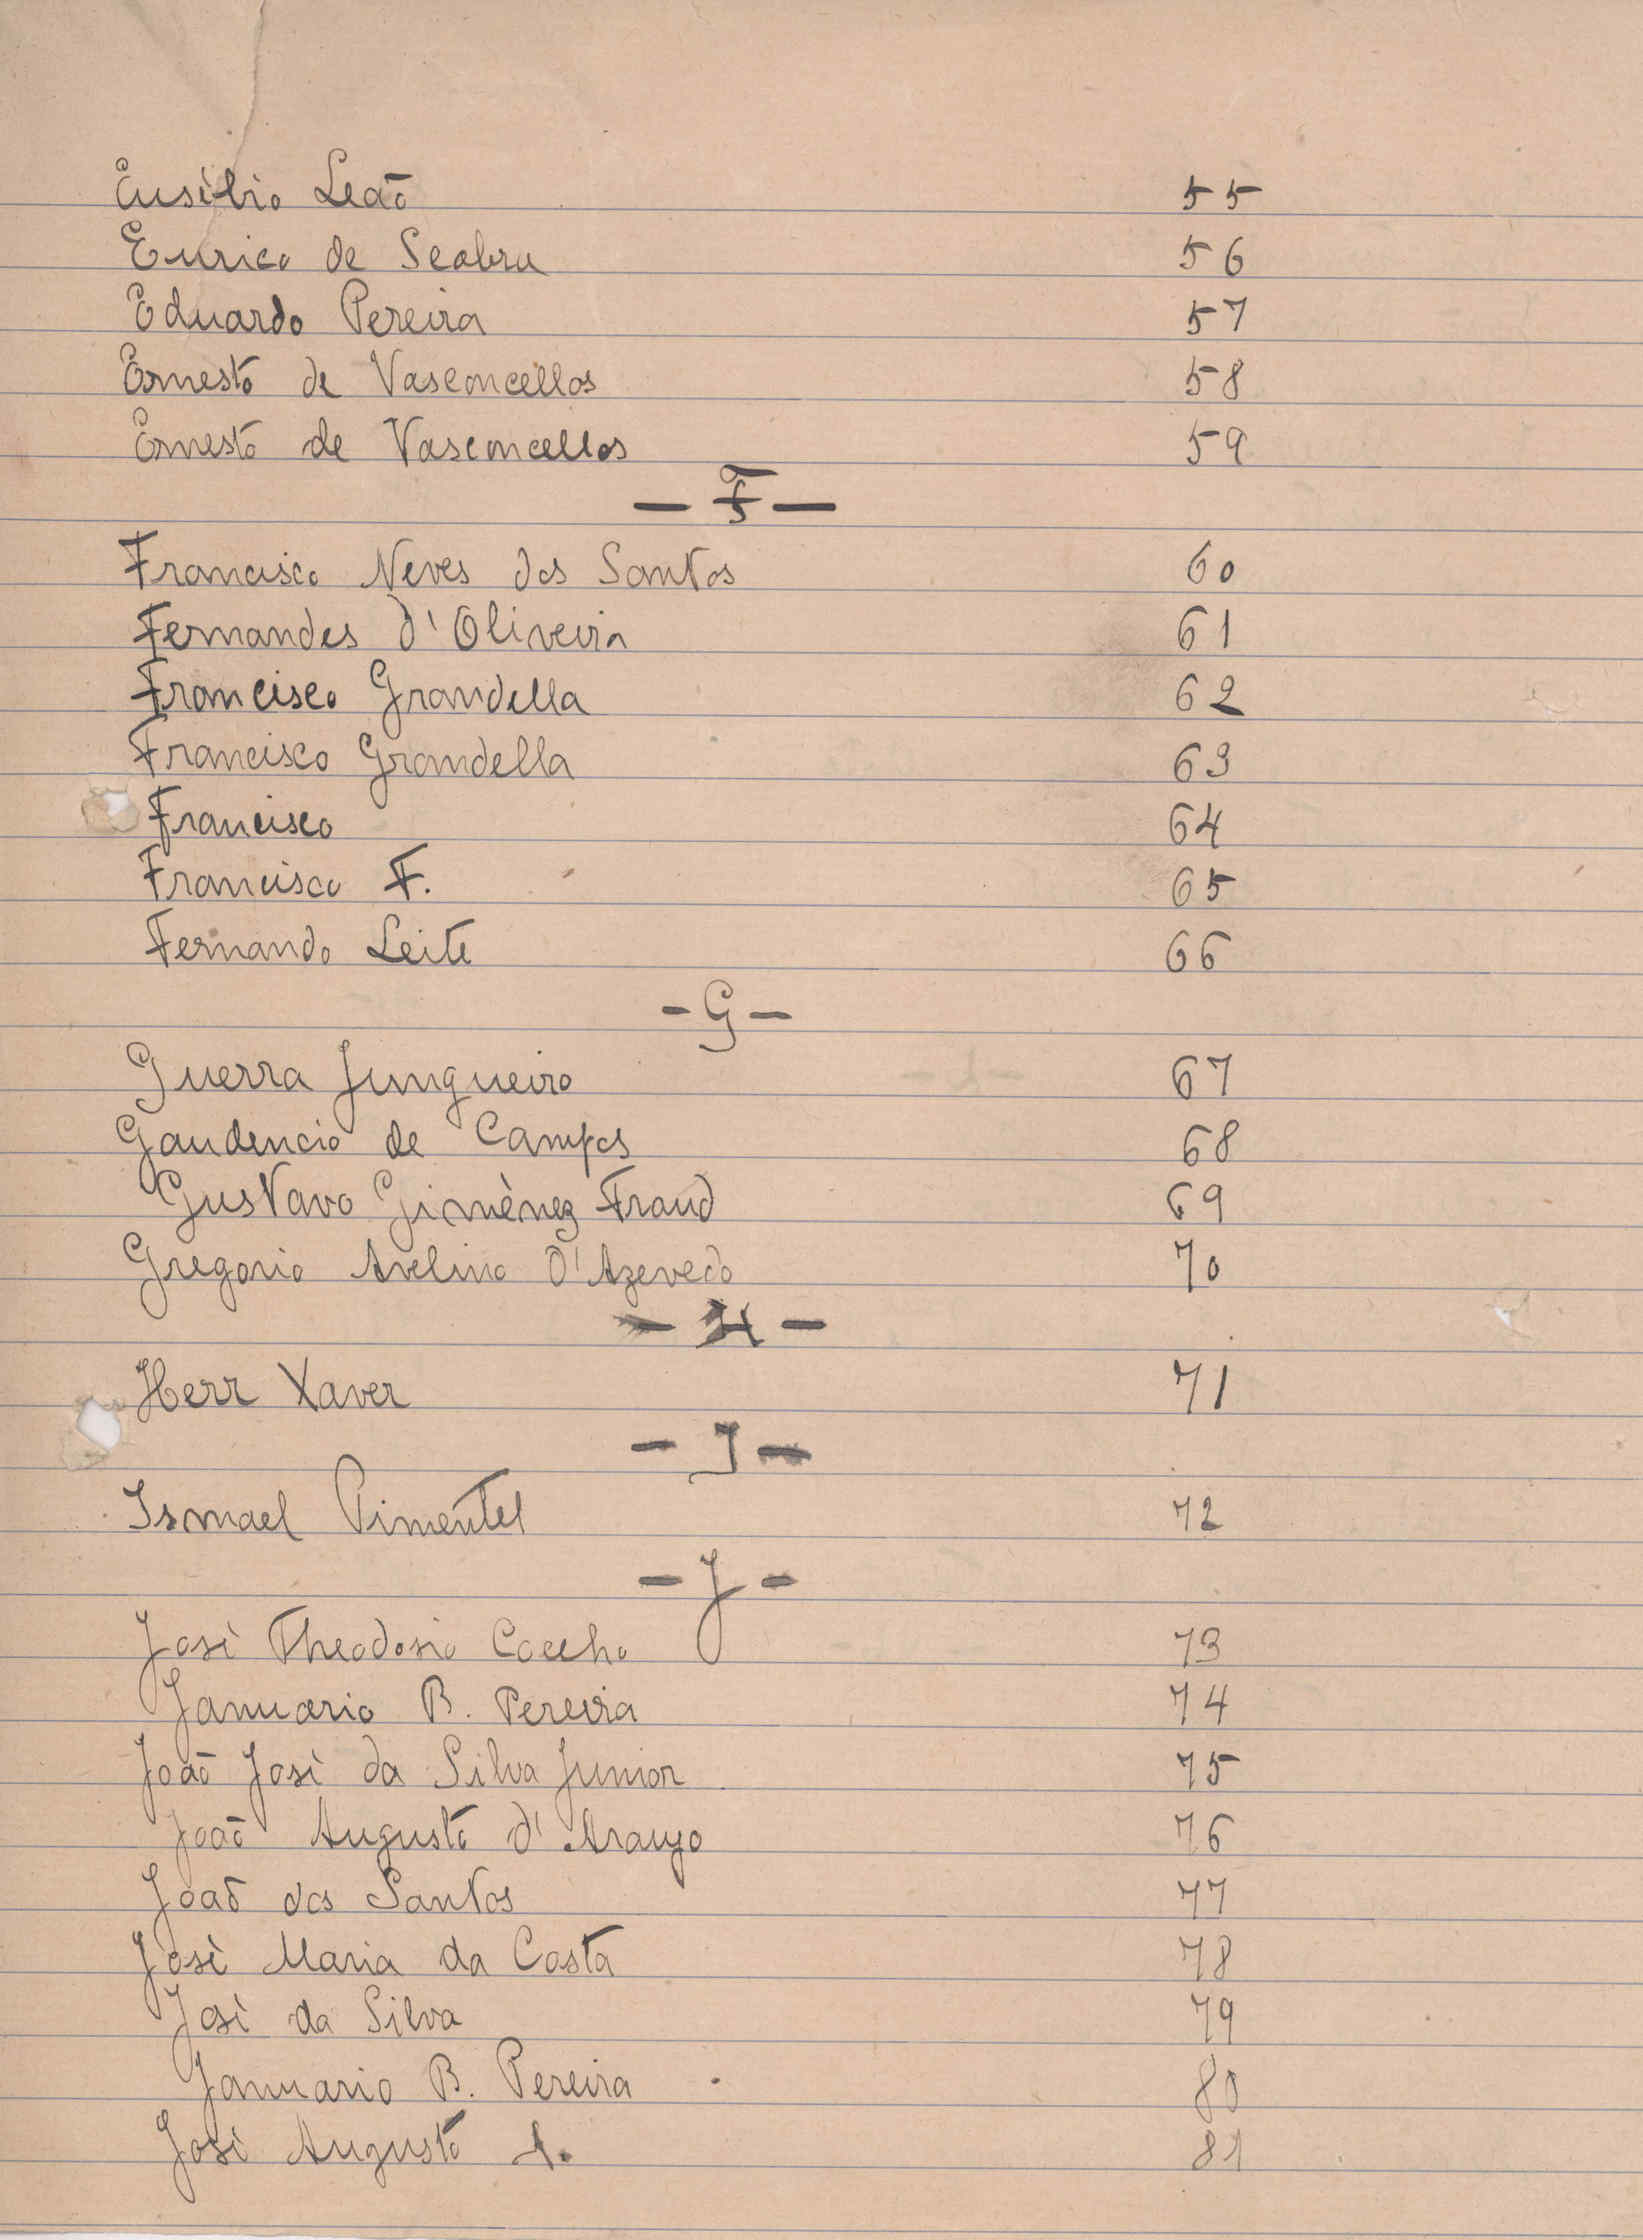 Eusèbio Leão 55
Eurico de Seabra 56
Eduardo Pereira 57
Ernesto de Vasconcellos 58
Ernesto de Vasconcellos 59
— F —
Francisco Neves dos Santos 60
Fernandes d'Oliveira 61
Francisco Grandella 62
Francisco Grandella 63
Francisco 64
Francisco F. 65
Fernando Leite 66
- G -
Guerra Junqueiro 67
Gaudencio de Campos 68
Gustavo Giménez Fraud 69
Gregorio Avelino d'Azevedo 70
- H -
Herr Xaver 71
- I -
Ismael Pimentel 72
- J -
Josè Theodosio Coelho 73
Januario B. Pereira 74
João Josè da Silva Junior 75
João Augusto d'Araujo 76
João dos Santos 77
Josè Maria da Costa 78
Josè da Silva 79
Januario B. Pereira 80
Josè Augusto A. 81